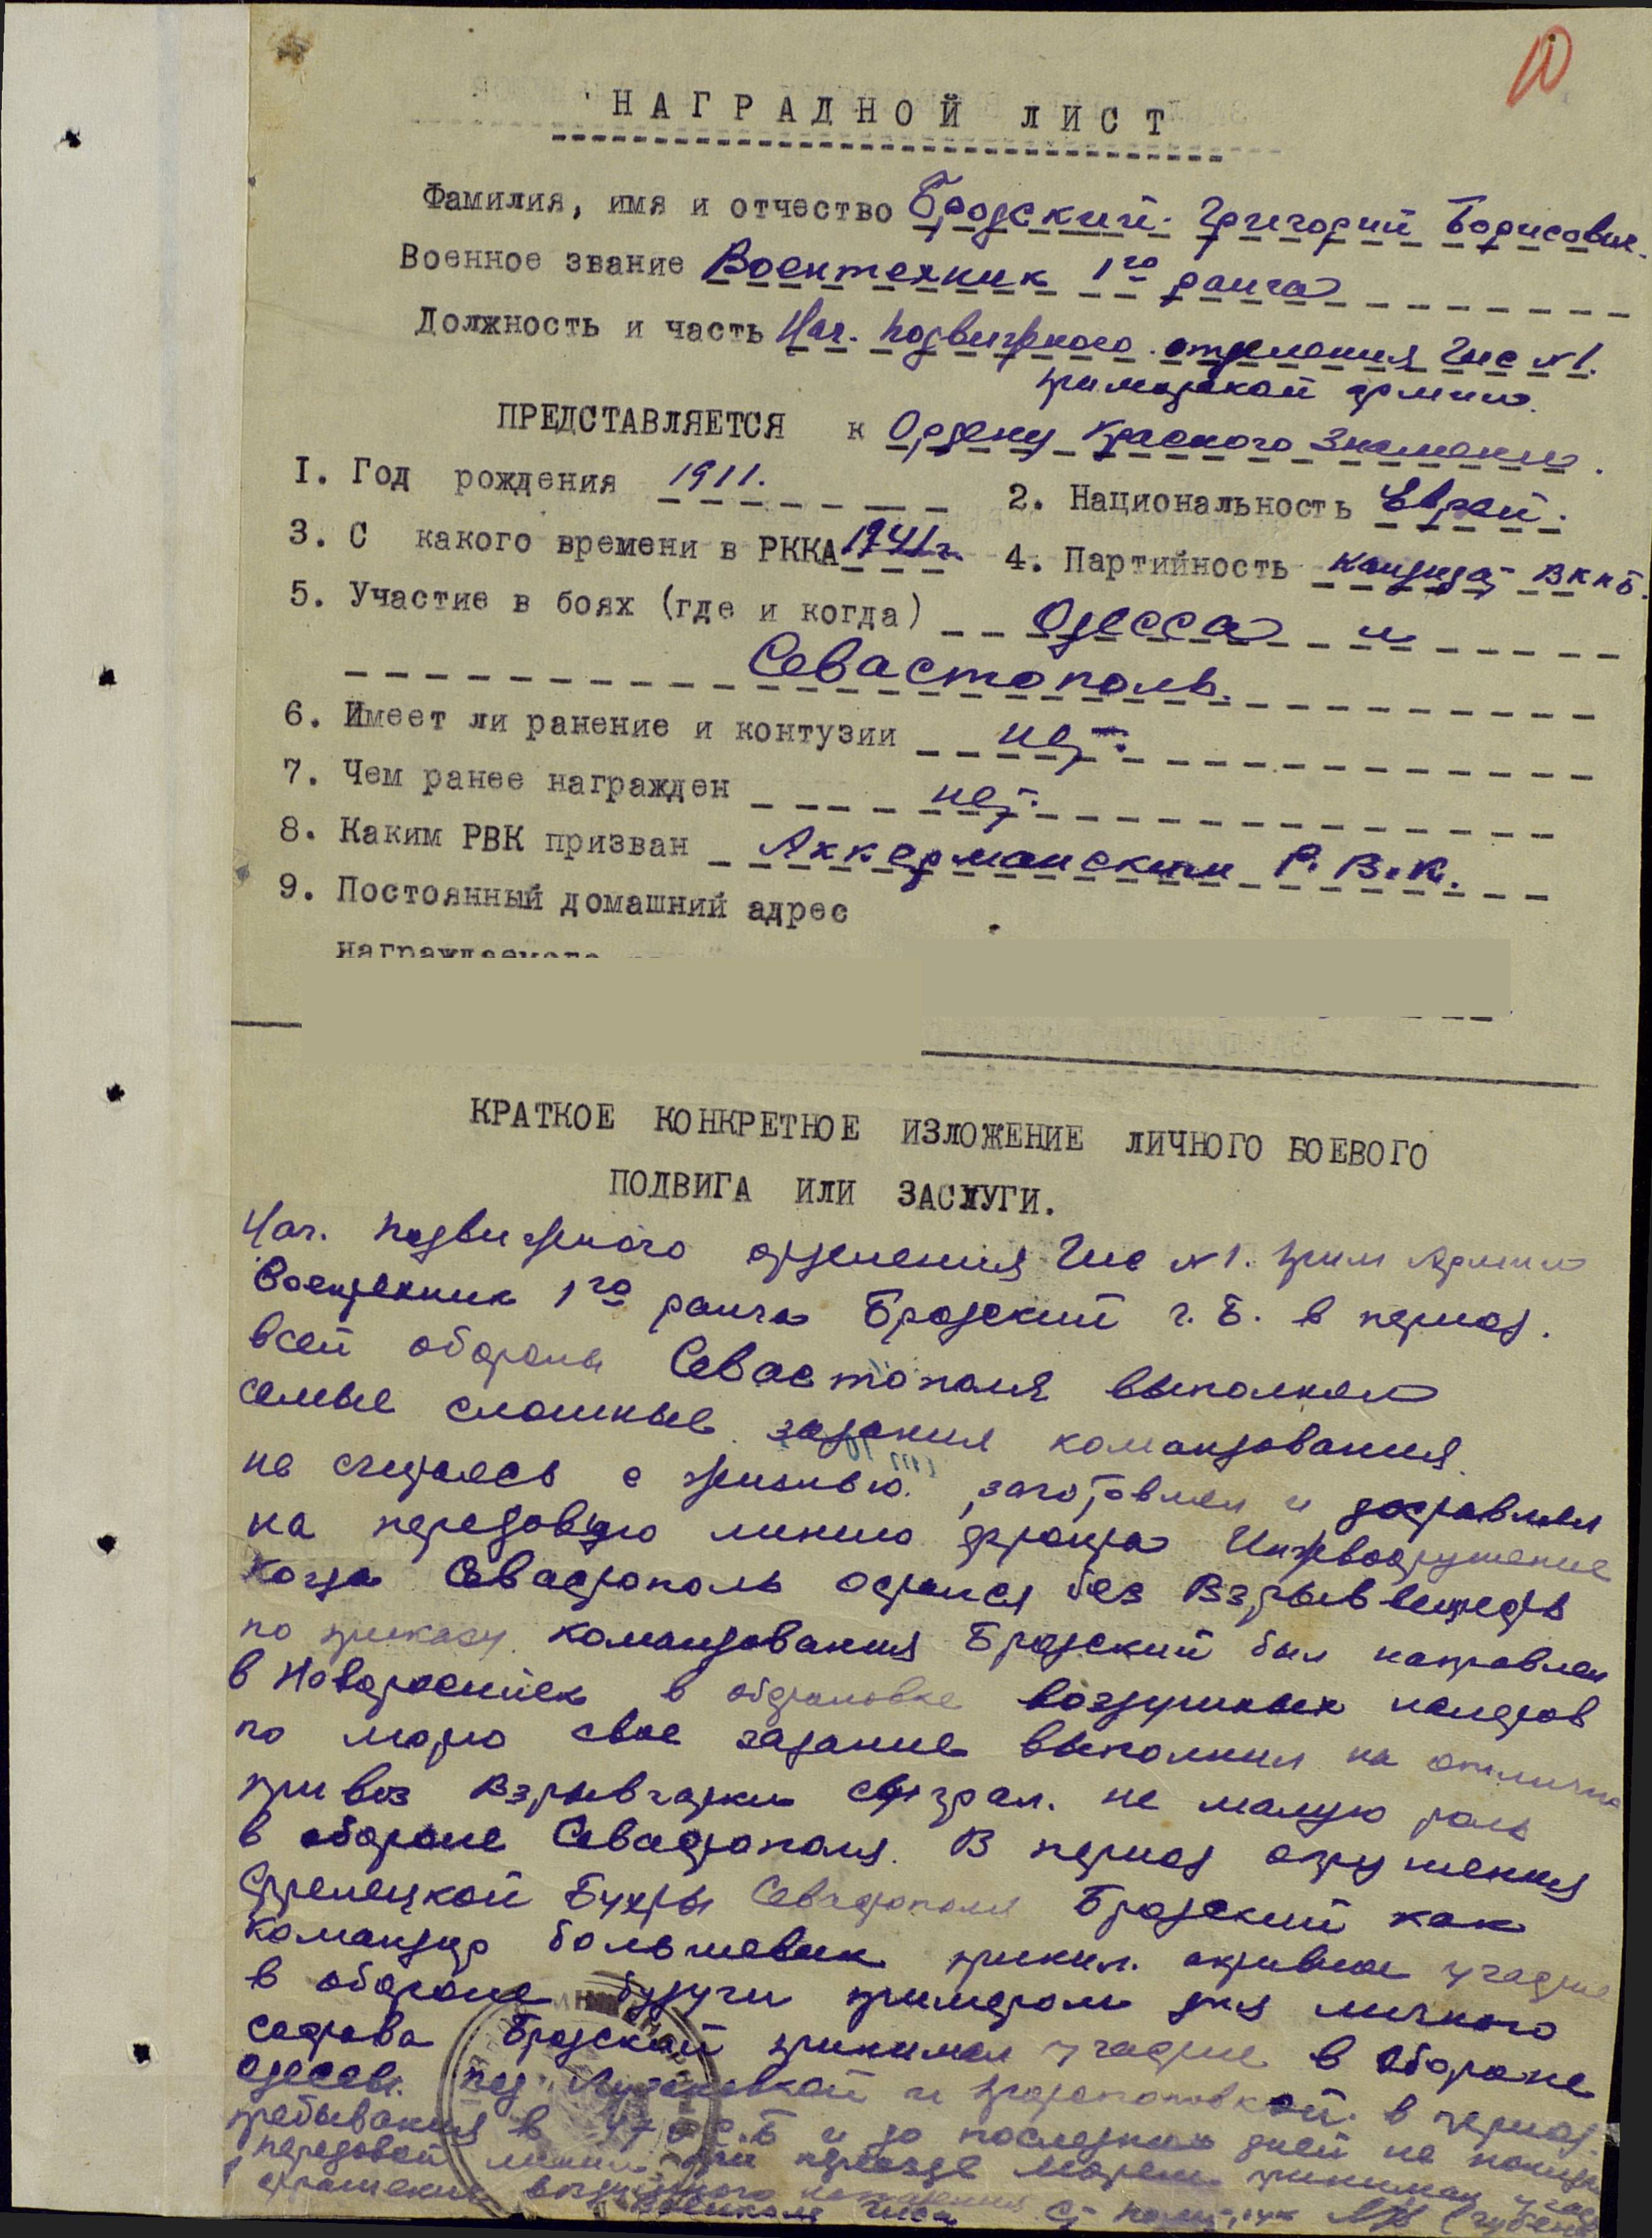 10
НАГРАДНОЙ ЛИСТ
Фамилия, имя и отчество Бродский Григорий Борисович.
Военное звание Воентехник 1го ранга
Должность и часть Нач. подвижного отделения Гис №1.
приморской армии.
ПРЕДСТАВЛЯЕТСЯ к Ордену Красного Знамени.
1. Год рождения 1911.
2. Национальность Еврей.
3. С какого времени в РККА 1941г.
4. Партийность кандидат ВКПБ.
5. Участие в боях (где и когда) Одесса и
Севастополь.
6. Имеет ли ранение и контузии нет.
7. Чем ранее награжден нет.
8. Каким РВК призван Аккерманским Р.В.К.
9. Постоянный домашний адрес
награждаемого
КРАТКОЕ КОНКРЕТНОЕ ИЗЛОЖЕНИЕ ЛИЧНОГО БОЕВОГО
ПОДВИГА ИЛИ ЗАСЛУГИ.
Нач. подвижного отделения Гис №1. прим Армии
Воентехник 1го ранга Бродский Г. Б. в период.
всей обороны Севастополя выполнял
самые сложные задания командования.
не считаясь с жизнью. заготовлял и доставлял
на передовую линию фронта Инжвооружение
Когда Севастополь остался без Взрыввеществ
по приказу командования Бродский был направлен
в Новороссийск в обстановке воздушных налетов
по морю свое задание выполнил на отлично
привоз Взрывчатки сыграл. не малую роль
в обороне Севастополя. В период окружения
Стрелецкой Бухты Севастополя Бродский как
командир большевик принял. активное участие
в обороне будучи примером для личного
состава Бродский принимал участие в обороне
Одессы. под и в период.
пребывания в 47 и до последних дней не
передовой линии при переезде морем принимал
отражении воздушного